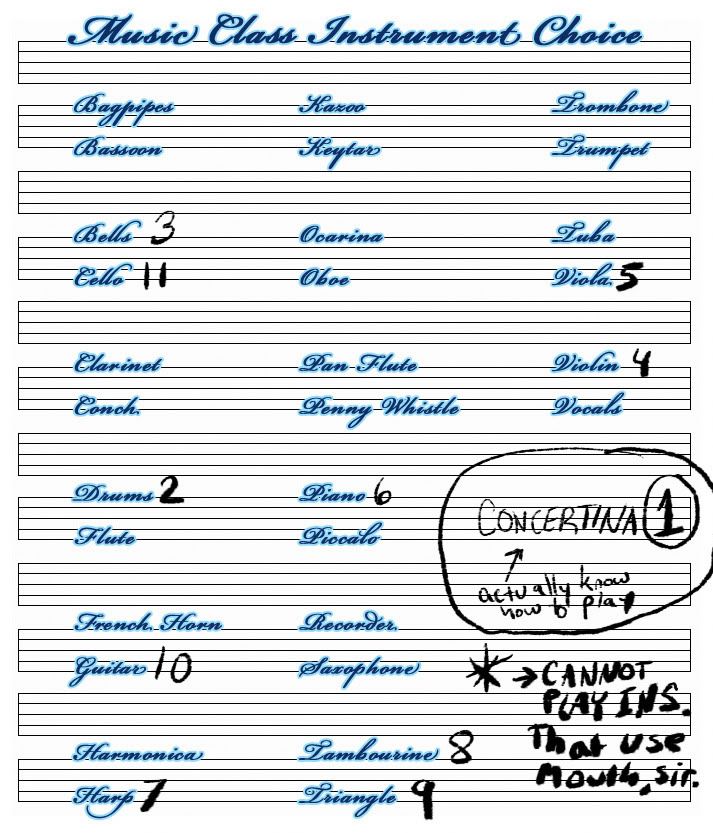 Music Class Instrument Choice
Bagpipes Kazoo Trombone
Bassoon Keytar Trumpet
Bells 3 Ocarina Tuba
Cello 11 Oboe Viola 5
Clarinet Pan Flute Violin 4
Conch Penny Whistle Vocals
Drums 2 Piano 6
CONCERTINA 1
Flute Piccalo
actually know
how to play
French Horn Recorder
Guitar 10 Saxophone
* → CANNOT
PLAY INS.
That use
Mouth, sir.
Harmonica Tambourine 8
Harp 7 Triangle 9